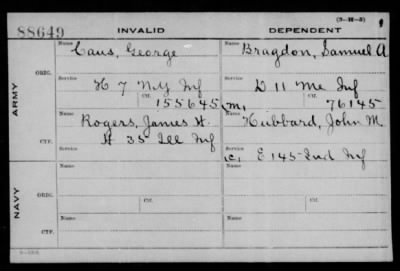 (3-312-3)
88649 INVALID DEPENDENT
Name Name
Caus, George Bragdon, Samuel A
ORIG.
Service Service
H 7 N.Y. Inf D 11 Me Inf
Ctf. Ctf.
155645 m, 76145
ARMY
Name Name
Rogers, James H. Hubbard, John M.
CTF.
Service Service
H 35 Ill Inf (C) E 145 Ind Inf
Name Name
ORIG.
Service Ctf. Service Ctf.
NAVY
Name Name
CTF.
Service Service